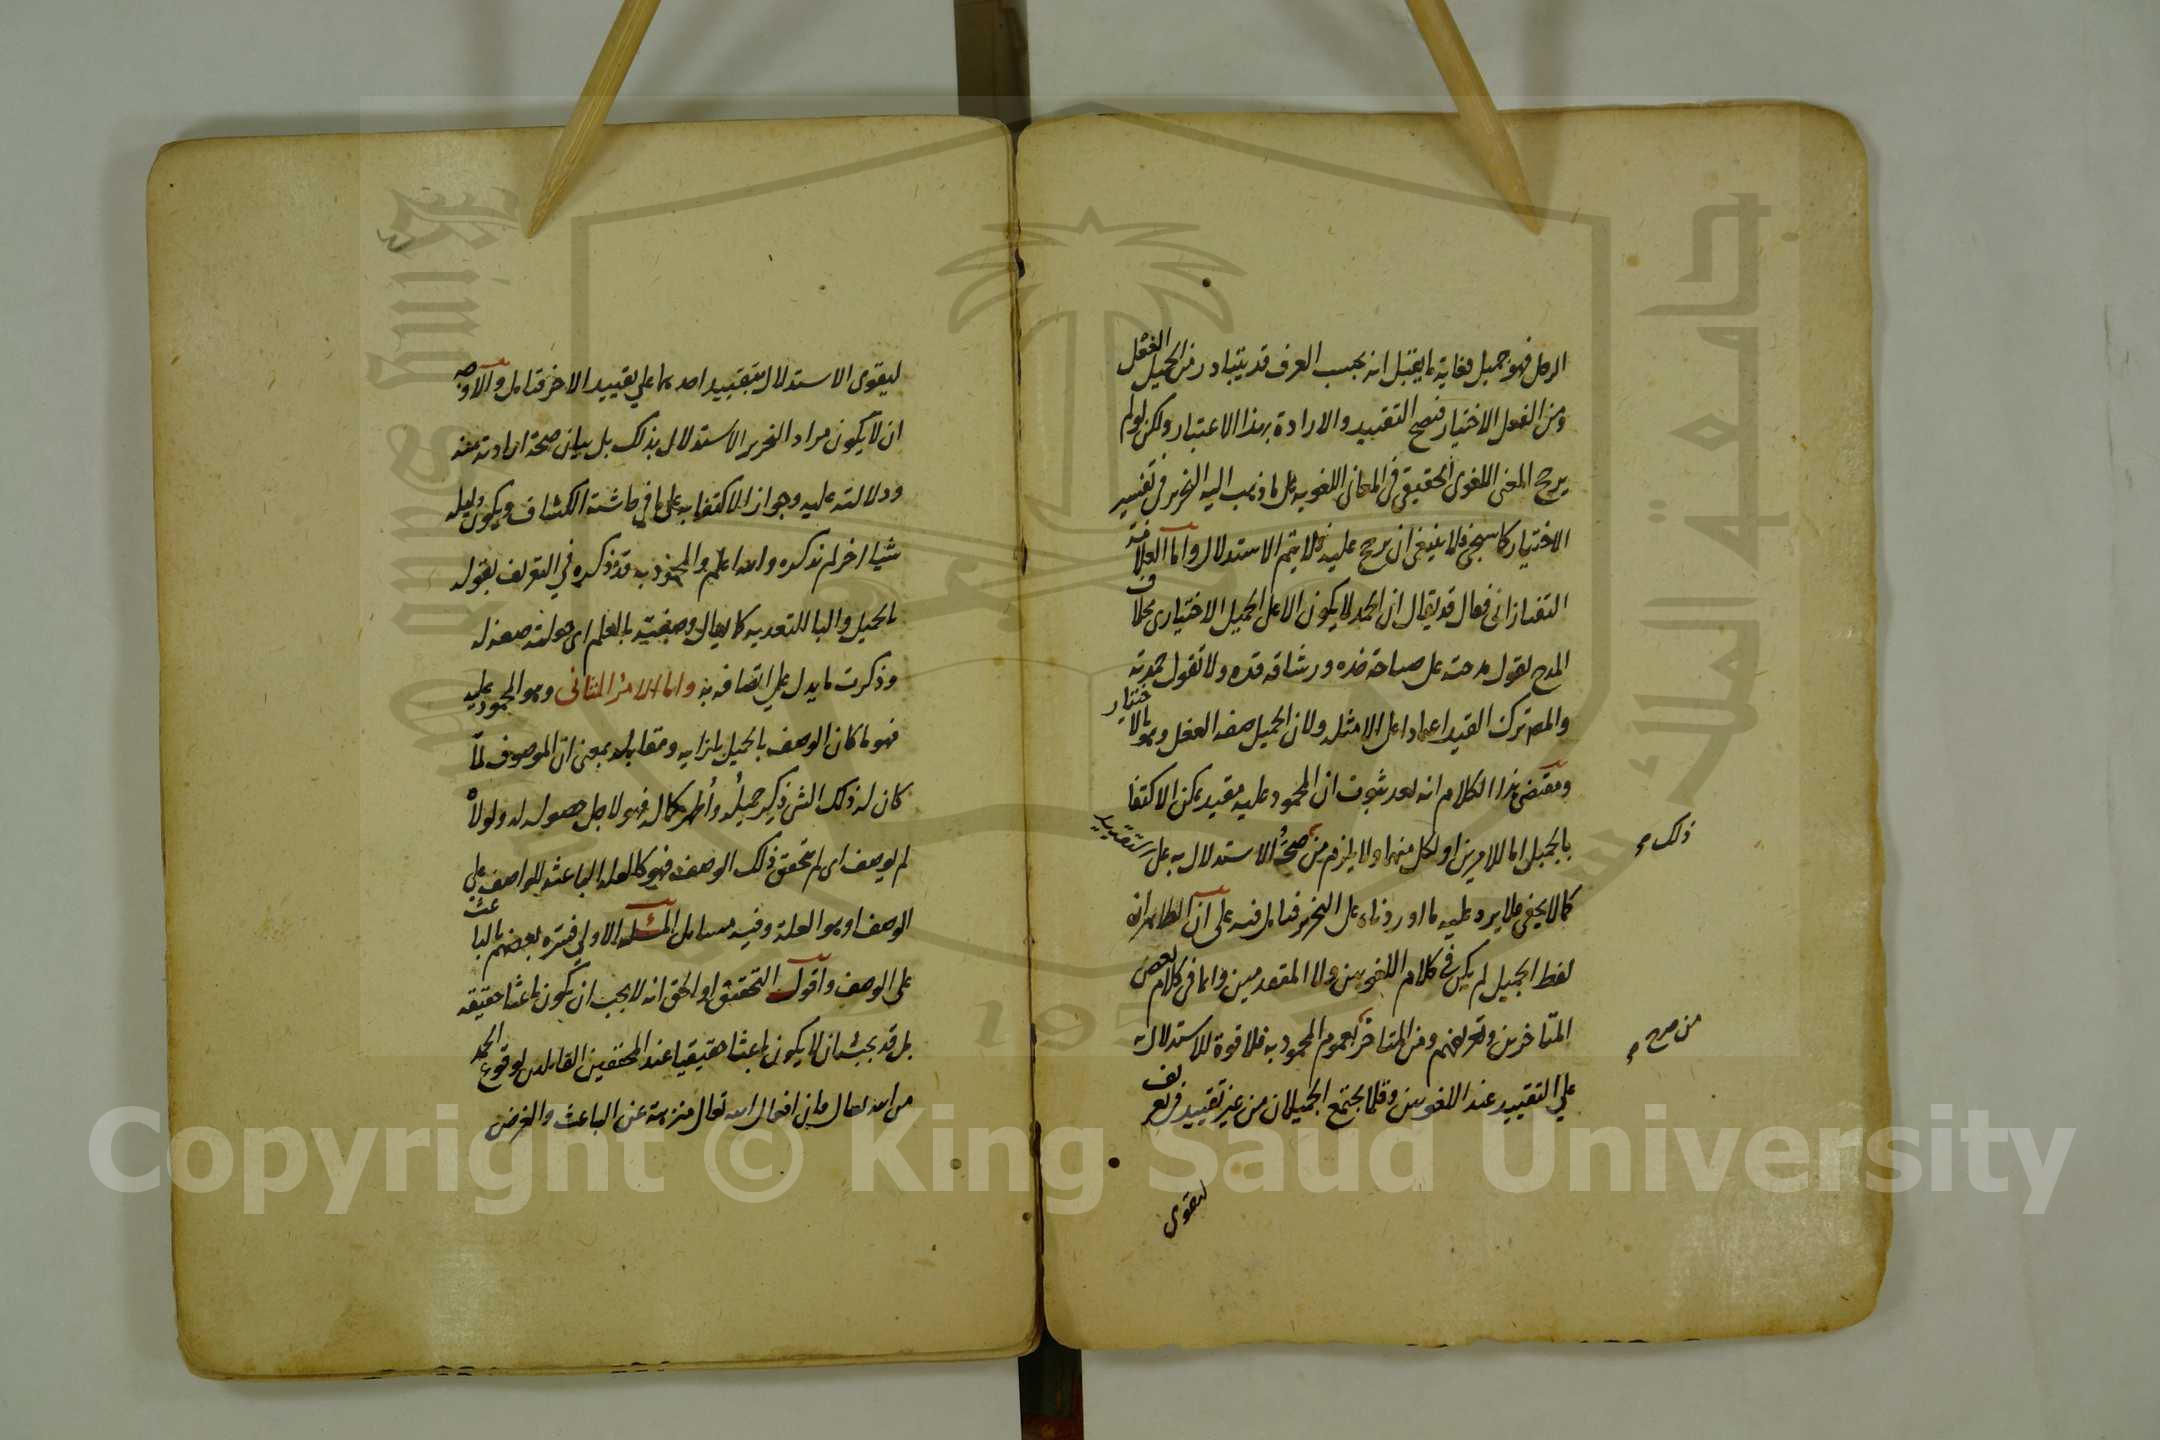 الرجل فهو جميل فغاية ما يقبل انه بحسب العرف قد يتبادر من الجميل الفعل
ومن الفعل الاختيار فنصح التقييد والارادة بهذا الاعتبار ولكن لو لم
يرجح المعنى اللغوى الحقيقي في المعاني اللغويه على ما ذهب اليه النحرير في تفسير
الاختيار كما سيجئ فلا ينبغي ان يرجح عليه فلا يتم الاستدلال واما العلامة
التفتازانى فقال قد يقال ان الحمد لا يكون الا على الجميل الاختيارى بخلاف
المدح تقول مدحته على صباحة خده ورشاقه قده ولا تقول حمدته
والمص ترك القيد اعتمادا على الامثله ولان الجميل صفه الفعل وهو بالاختيار
ومقتضى هذا الكلام انه بعد ثبوت ان المحمود عليه مقيد يمكن الاكتفا
بالجميل اما للامرين او لكل منهما ولا يلزم من صحة الاستدلال به على تقييد
ذلك
كما لا يخفى فلا يرد عليه ما اوردناه على النحرير فتامل فيه على ان الظاهر ان
لفظ الجميل لم يكن في كلام اللغويين ولا المتقدمين وانما في كلام بعض
المتاخرين وتعريفهم ومن المتاخر بعموم المحمود به فلا قوة للاستدلال
من صرح
على التقييد عند اللغويين وقلما يجتمع الجميلان من غير تقييد في تعريف
ليقوى
ليقوى الاستدلال بتقييد احدهما على تقييد الاخر فتامل والاوجه
ان لا يكون مراد النحرير الاستدلال بذلك بل بيان صحة ارادته منه
ودلالته عليه وجواز الاكتفا به على ما في حاشية الكشاف ويكون دليله
شيا اخر لم نذكره والله اعلم والمحمود به قد ذكره في التعريف بقوله
بالجميل والبا للتعديه كما يقال وصفته بالعلم اى جعلته صفه له
وذكرت ما يدل على اتصافه به واما الامر الثانى وهو المحمود عليه
فهو ما كان الوصف بالجميل بازايه ومقابله بمعنى ان الموصوف لما
كان له ذلك الشئ ذكر جميله واظهر كماله فهو لاجل حصوله له ولولاه
لم يوصف اى لم يتحقق ذلك الوصف فهو كالعله الباعثه للواصف على
الوصف او هو العلة وفيه مسايل المسئله الاولي فسره بعضهم بالباعث
على الوصف واقول التحقيق او الحق انه لا يجب ان يكون باعثا حقيقه
بل قد يجب ان لا يكون باعثا حقيقيا عند المحققين القايلين بوقوع الحمد
من الله تعالى فان افعال الله تعالى منزهة عن الباعث والغرض
Copyright © King Saud University
جامعة الملك سعود
King Saud University
1957